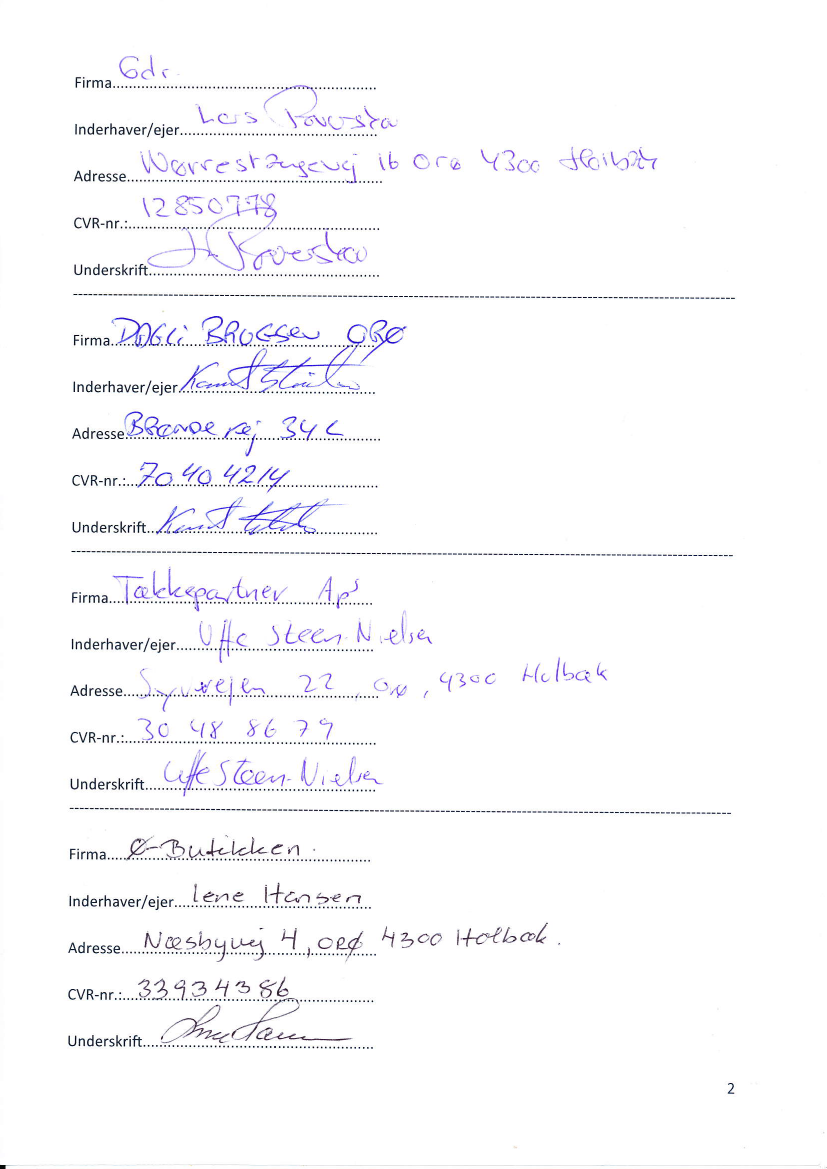 Firma Gdr.
Inderhaver/ejer Lars
Adresse 16 Orø 4300
CVR-nr.: 12850778
Underskrift
Firma DAGLI BRUGSEN ORØ
Inderhaver/ejer
Adresse 34 C
CVR-nr.: 70 40 42 14
Underskrift
Firma Tækkepartner ApS
Inderhaver/ejer Uffe Steen-Nielsen
Adresse 22, Orø, 4300 Holbæk
CVR-nr.: 30 48 86 79
Underskrift Uffe Steen-Nielsen
Firma Ø-Butikken.
Inderhaver/ejer Lene Hansen
Adresse Næsbyvej 4, ORØ 4300 Holbæk.
CVR-nr.: 33934386
Underskrift
2